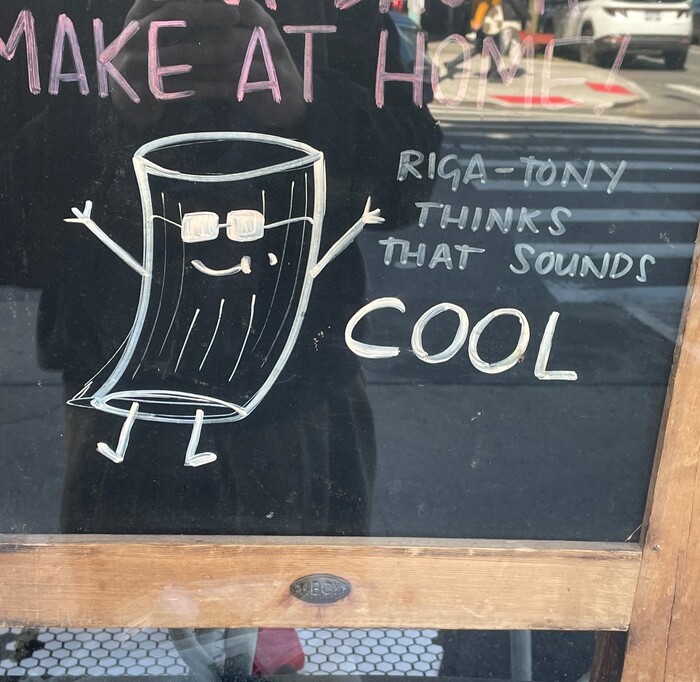 MAKE AT HOME!
RIGA-TONY
THINKS
THAT SOUNDS
COOL